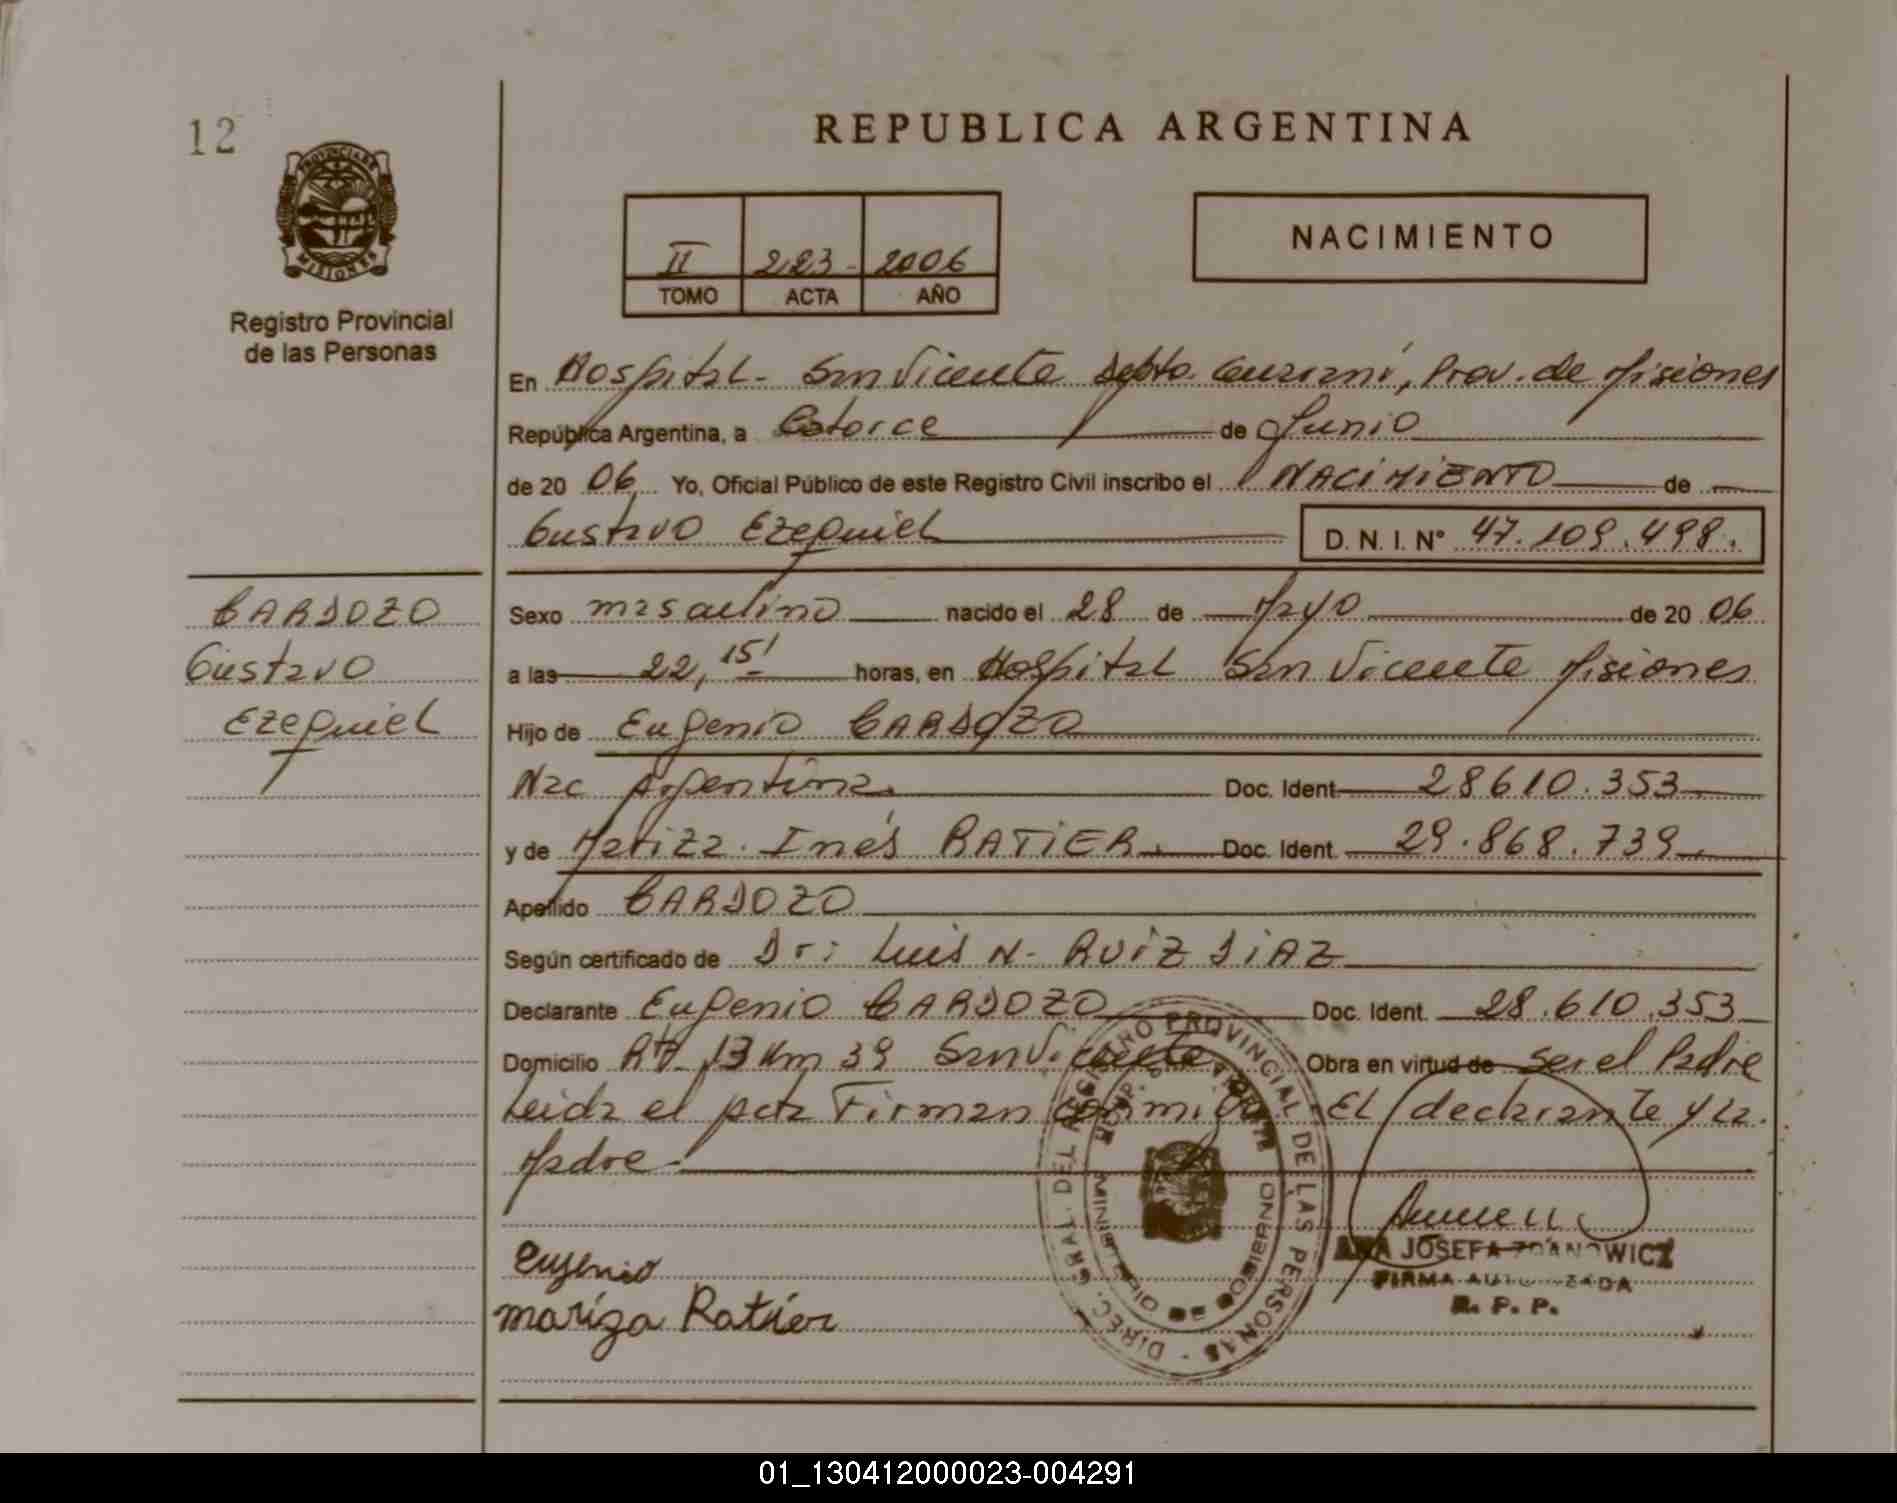 12
REPUBLICA ARGENTINA
PROVINCIA DE
MISIONES
Registro Provincial
de las Personas
II 223- 2006
TOMO ACTA AÑO
NACIMIENTO
En Hospital- San Vicente Dpto. Guaraní, Prov. de Misiones
República Argentina, a Catorce de Junio
de 20 06 Yo, Oficial Público de este Registro Civil inscribo el NACIMIENTO de
Gustavo Ezequiel D. N. I. N° 47.109.498.
CARDOZO
Gustavo
Ezequiel
Sexo masculino nacido el 28 de Mayo de 20 06
a las 22,15' horas, en Hospital San Vicente Misiones
Hijo de Eugenio CARDOZO
Nac Argentina. Doc. Ident 28610.353
y de Mariza Inés RATIER. Doc. Ident. 29.868.739
Apellido CARDOZO
Según certificado de Dr: Luis N- RUIZ DIAZ
Declarante Eugenio CARDOZO Doc. Ident. 28.610.353
Domicilio Rta 13 Km 39 San Vicente Obra en virtud de ser el Padre
Leida el acta Firman conmigo El declarante y la
Madre-
Eugenio
mariza Ratier
DIREC. GRAL. DEL REGISTRO PROVINCIAL DE LAS PERSONAS
MINISTERIO DE GOBIERNO
ANA JOSEFA ZDANOWICZ
FIRMA AUTORIZADA
R. P. P.
01_130412000023-004291